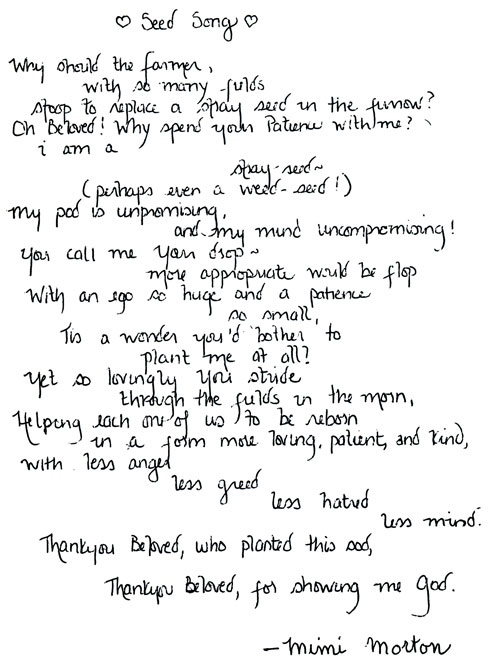 ♡ Seed Song ♡
Why should the farmer,
with so many fields
stoop to replace a stray seed in the furrow?
Oh Beloved! Why spend your Patience with me?
i am a
stray-seed~
(perhaps even a weed-seed!)
My pod is unpromising,
and my mind uncompromising!
You call me your crop~
more appropriate would be flop
With an ego so huge and a patience
so small,
Tis a wonder you'd bother to
plant me at all?
Yet so lovingly you stride
through the fields in the morn,
Helping each one of us to be reborn
in a form more loving, patient, and kind,
with less anger
less greed
less hatred
less mind.
Thankyou Beloved, who planted this sod,
Thankyou Beloved, for showing me God.
—Mimi Morton